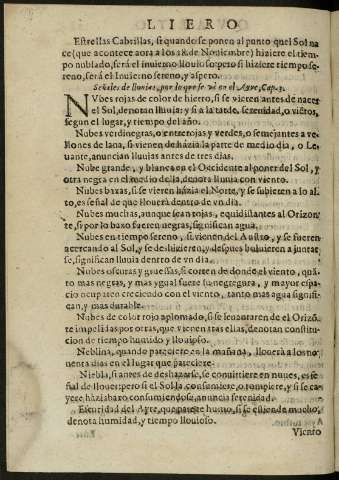 LIBRO
Estrellas Cabrillas, si quando se ponen al punto quel Sol na
ce (que acontece aora a los 18. de Nouiembre) hiziere el tiem
po ñoblado, será el inuierno lluuioso: pero si hiziere tiempo se
reno, será el Inuierno sereno, y aspero.
Señales de lluuias, por lo que se vé en el Ayre, Cap. 3.
NVbes rojas de color de hierro, si se vieren antes de nacer
el Sol, denotan lluuia: y si a la tarde, serenidad, o viētos,
segun el lugar, y tiempo del año.
Nubes verdinegras, o entre rojas y verdes, o semejantes a ve-
llones de lana, si vienen de házia la parte de medio dia, o Le-
uante, anuncian lluuias antes de tres dias.
Nube grande, y blanca en el Occidente al poner del Sol, y
otra negra en el medio della, denota lluuia con viento.
Nubes baxas, si se vieren házia el Norte, y se subieren a lo al
to, es señal de que llouerá dentro de vn dia.
Nubes muchas, aunque sean rojas, equidistantes al Orizon
te, si por lo baxo fueren negras, significan agua.
Nubes en tiempo sereno, si vienen del Austro, y se fueren
acercando al Sol, y se deshizieren, y despues boluieren a juntar
se, significan lluuia dentro de vn dia.
Nubes oscuras y gruessas, si corren de donde el viento, quā-
to mas negras, y mas ygual fuere su negregura, y mayor espa-
cio ocuparen creciendo con el viento, tanto mas agua signifi-
can, y mas durable.
Nubes de color rojo aplomado, si se leuantaren de el Orizō-
te impelidas por otras, que vienen tras ellas, denotan constitu-
cion de tiempo humido y lluuioso.
Neblina, quando pareciere en la mañana, llouerá a los no-
uenta dias en el lugar que pareciere.
Niebla, si antes de deshazerse, se conuirtiere en nubes, es se-
ñal de llouer: pero si el Sol la consumiere, o rompiere, y si se ca-
yere házia baxo consumiendose, anuncia serenidad.
Escuridad del Ayre, que parece humo, si se estiende mucho,
denota humidad, y tiempo lluuioso.
Viento